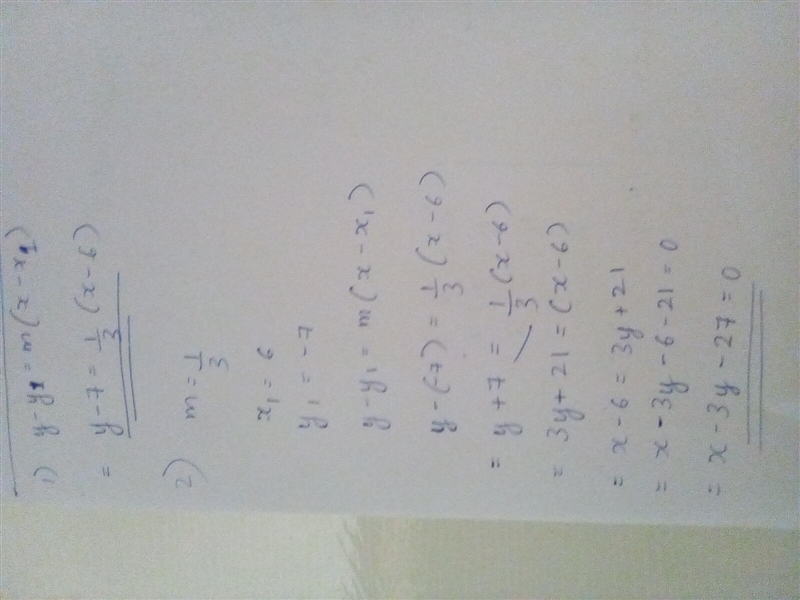 1) y-y₁ = m(x-x₁)
= y-7 = 1/3 (x-6)
2) m = 1/3
x₁ = 6
y₁ = -7
y-y₁ = m(x-x₁)
y-(-7) = 1/3 (x-6)
= y+7 = 1/3 (x-6)
= 3y+21 = (x-6)
= x-6 = 3y+21
= x-3y-6-21=0
= x-3y-27=0